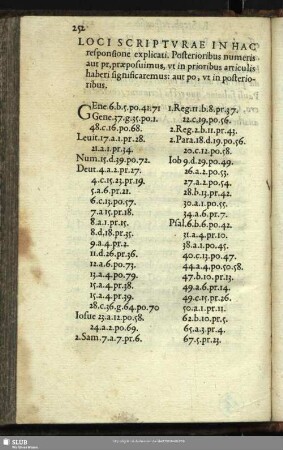 252
LOCI SCRIPTVRAE IN HAC
responsione explicati. Posterioribus numeris
aut pr, præposuimus, vt in prioribus articulis
haberi significaremus: aut po, vt in posterio-
ribus.
GEne.6.b.5.po.41.71
Gene.37.g.35.po.1.
48.c.16.po.68.
Leuit.17.a.1.pr.28.
21.a.1.pr.34.
Num.15.d.39.po.72.
Deut.4.a.2.pr.27.
4.c.15.23.pr.19.
5.a.6.pr.21.
6.c.13.po.57.
7.a.15.pr.18.
8.a.1.pr.15.
8.d.18.pr.35.
9.a.4.pr.2.
11.d.26.pr.36.
12.a.6.po.73.
13.a.4.po.79.
15.a.4.pr.38.
15.a.4.pr.39.
28.c.36.g.64.po.70
Iosue 23.a.12.po.58.
24.a.2.po.69.
2.Sam.7.a.7.pr.6.
1.Reg.11.b.8.pr.37.
12.c.19.po.56.
2.Reg.2.b.11.pr.43.
2.Para.18.d.19.po.56.
20.c.12.po.58.
Iob 9.d.29.po.49.
26.a.2.po.53.
27.a.2.po.54.
28.b.13.pr.42.
30.a.1.po.55.
34.a.6.pr.7.
Psal.6.b.6.po.42.
31.a.4.pr.10.
38.a.1.po.45.
40.c.13.po.47.
44.a.4.po.50.58.
47.b.10.pr.13.
49.a.6.pr.14.
49.c.15.pr.26.
50.a.1.pr.11.
62.b.10.pr.5.
65.a.3.pr.4.
67.5.pr.23.
SLUB